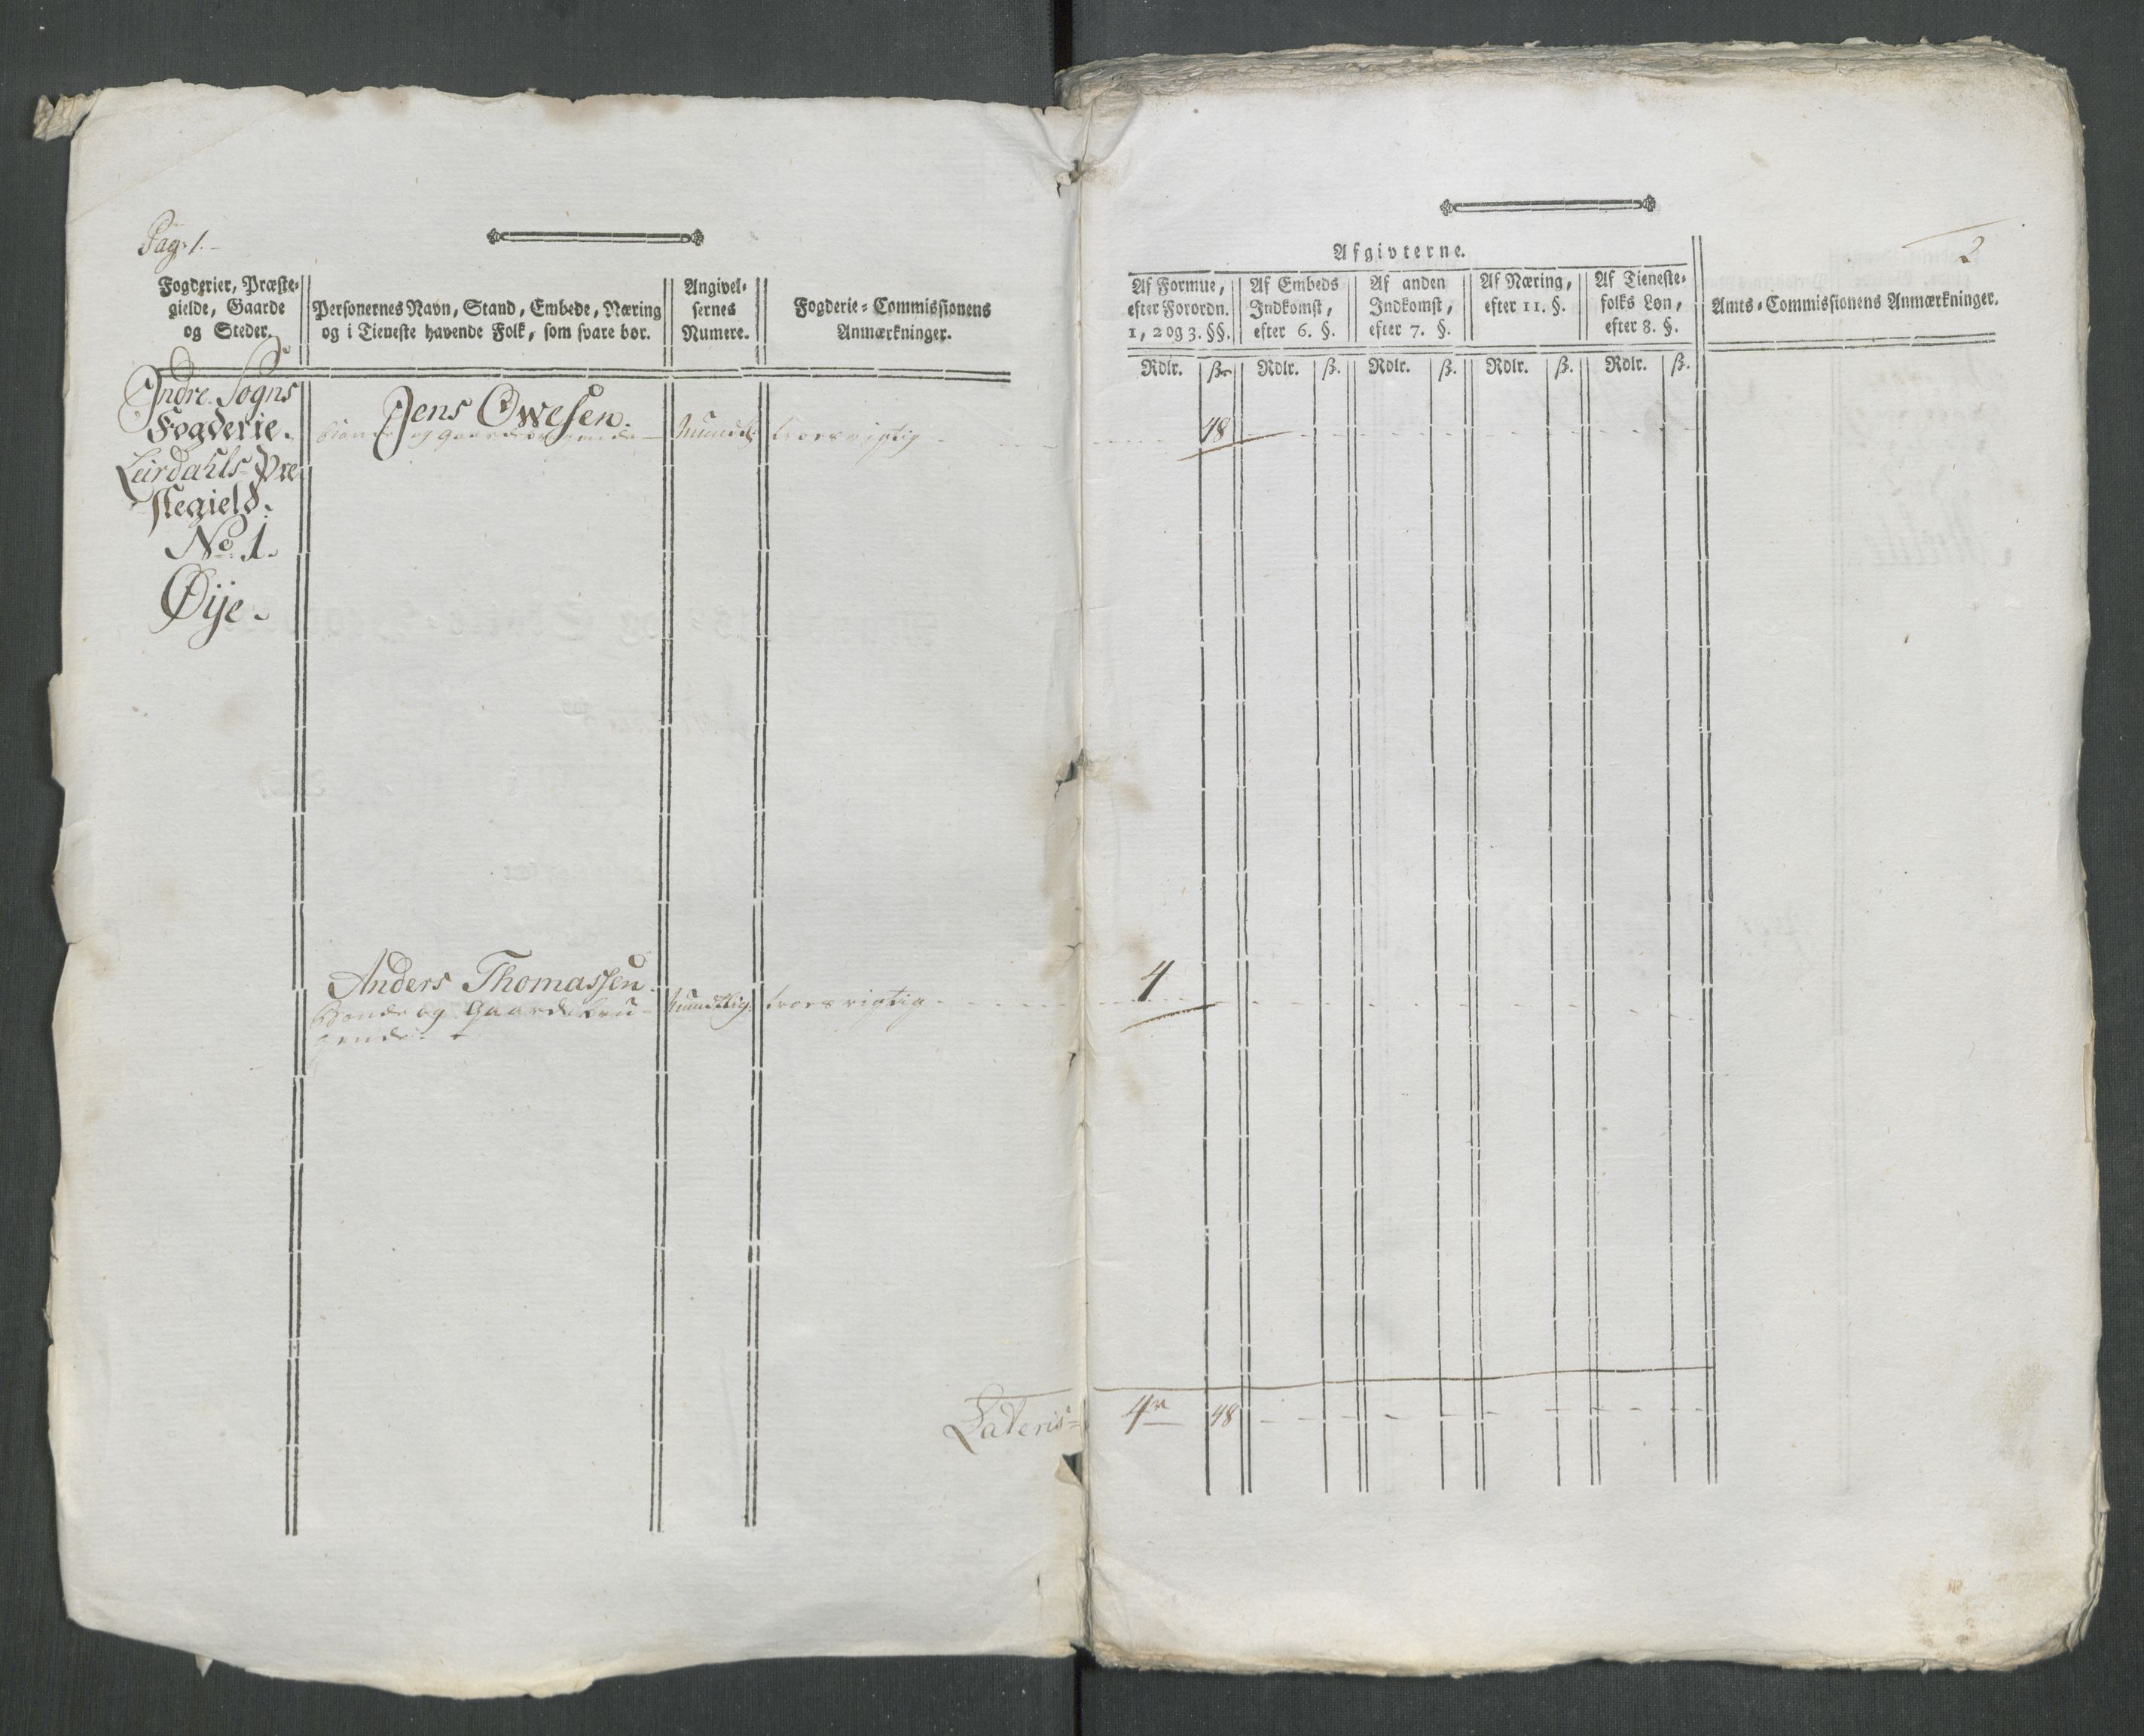 Pag: 1.
Fogderier, Præste-
gielde, Gaarde
og Steder.
Personernes Navn, Stand, Embede, Næring
og i Tieneste havende Folk, som svare bør.
Angivel-
sernes
Numere.
Fogderie-Commissionens
Anmærkninger.
Indre Sogns
Fogderie.
Leirdahls Præ-
stegield.
No. 1.
Øije.
Jens Owesen.
Bonde og Gaardbrugende
Mundtl:
troes rigtig
Anders Thomassen.
Bonde og Gaardbru-
gende.
Mundtlig
troes rigtig
Lateris
2
Afgivterne.
Af Formue,
efter Forordn.
1, 2 og 3. §§.
Af Embeds
Indkomst,
efter 6. §.
Af anden
Indkomst,
efter 7. §.
Af Næring,
efter 11. §.
Af Tieneste-
folks Løn,
efter 8. §.
Amts-Commissionens Anmærkninger.
Rdlr. ß. Rdlr. ß. Rdlr. ß. Rdlr. ß. Rdlr. ß.
48
4
4 48